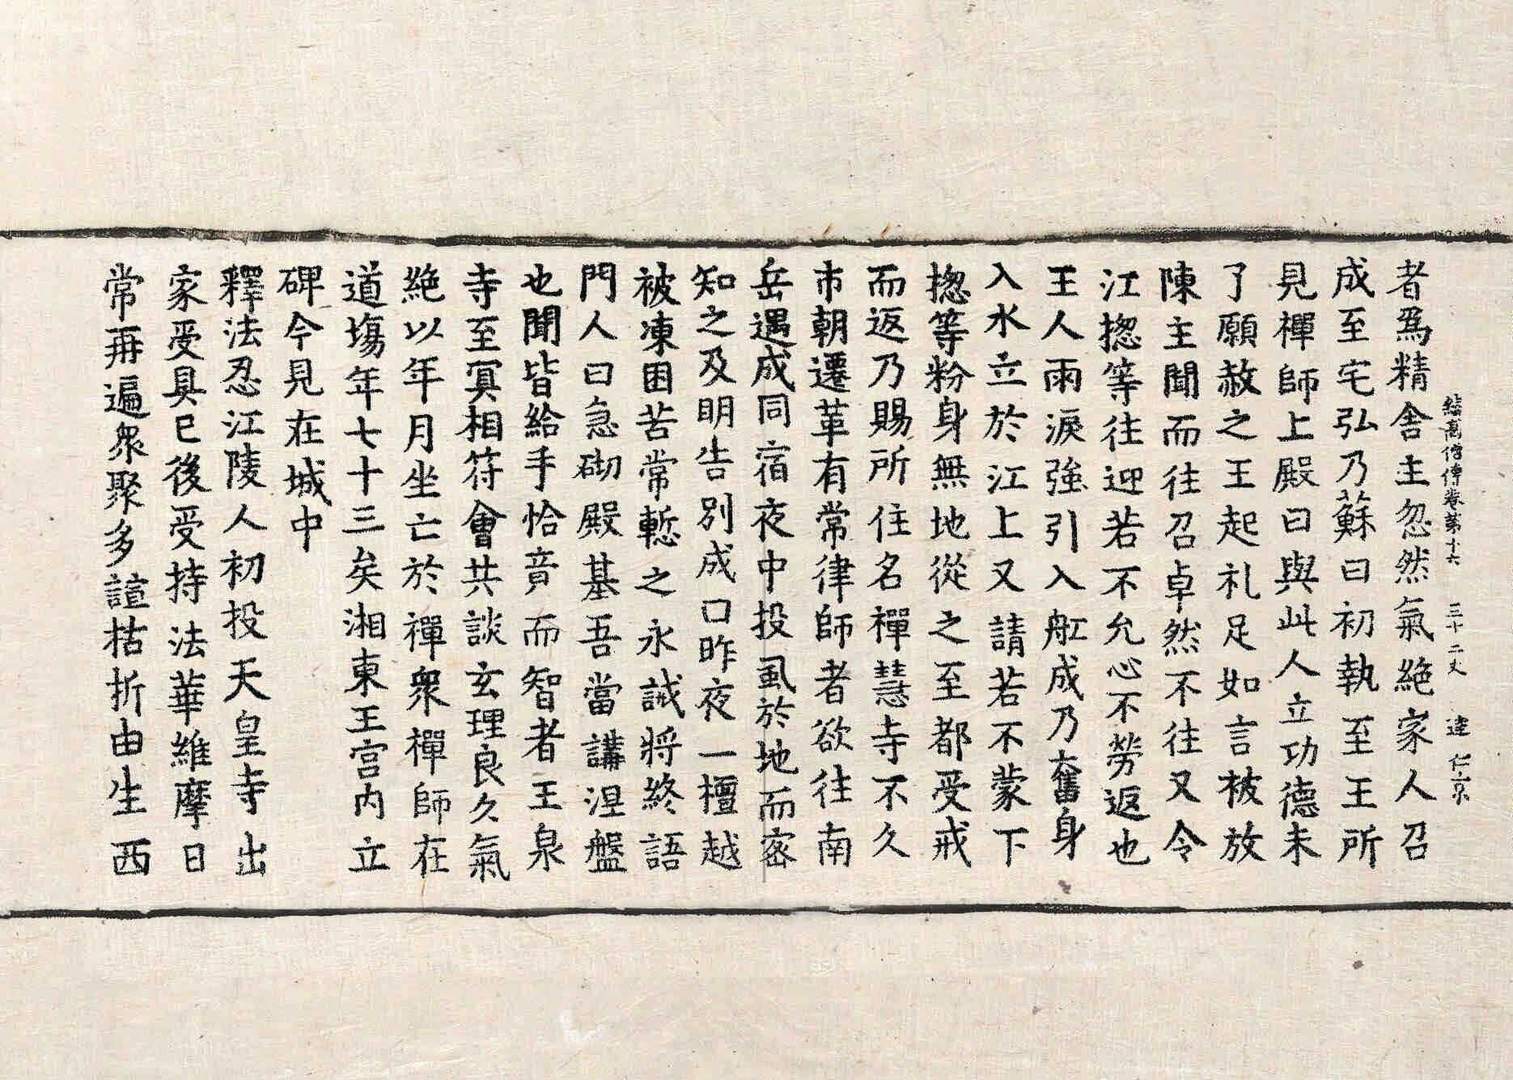 者爲精舍主忽然氣絶家人召
續高僧傳卷第十六 三十二丈 達 仁京
成至宅弘乃蘇曰初執至王所
見禪師上殿曰與此人立功德未
了願赦之王起礼足如言被放
陳主聞而往召卓然不往又令
江揔等往迎若不允心不勞返也
王人雨淚強引入舡成乃奮身
入水立於江上又請若不蒙下
揔等粉身無地從之至都受戒
而返乃賜所住名禪慧寺不久
市朝遷革有常律師者欲往南
岳遇成同宿夜中投虱於地而密
知之及明告別成口昨夜一檀越
被凍困苦常慙之永誡將終語
門人曰急砌殿基吾當講涅盤
也聞皆給手恰竟而智者王泉
寺至冥相符會共談玄理良久氣
絶以年月坐亡於禪衆禪師在
道塲年七十三矣湘東王宫内立
碑今見在城中
釋法忍江陵人初投天皇寺出
家受具已後受持法華維摩日
常再遍衆聚多諠括折由生西